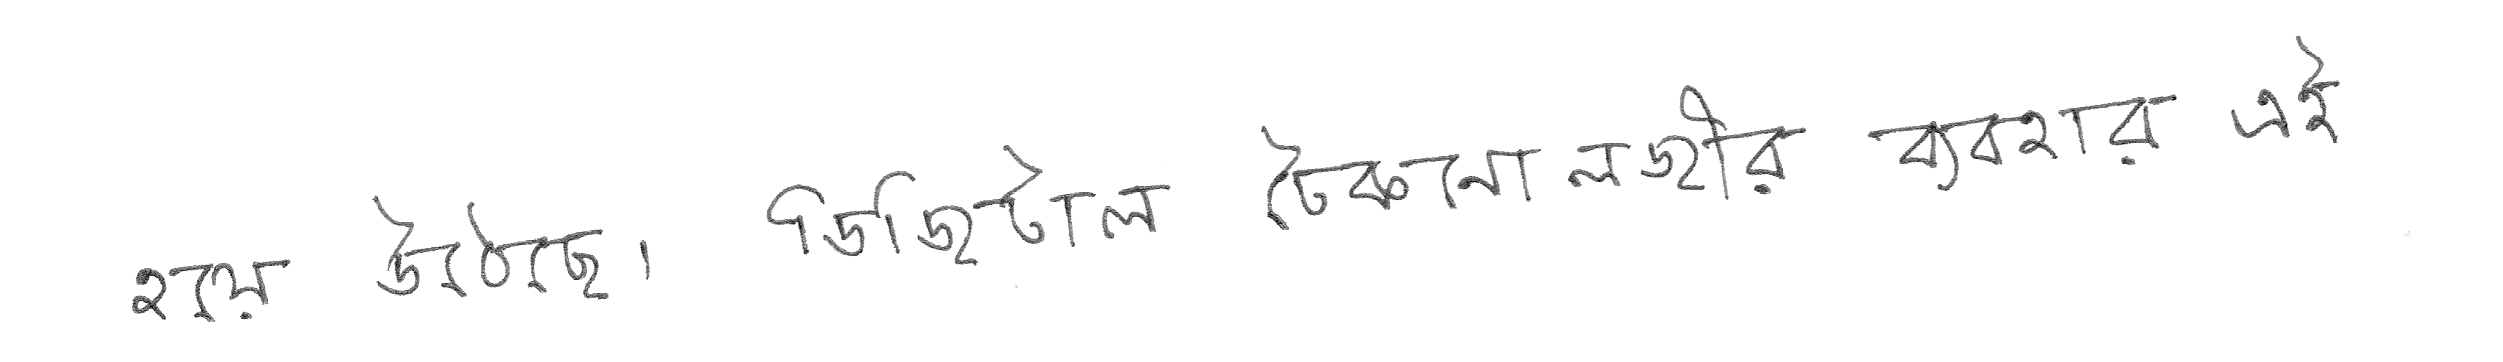 হয়ে উঠেছে। ডিজিটাল টেকনোলজীর ব্যবহার এই